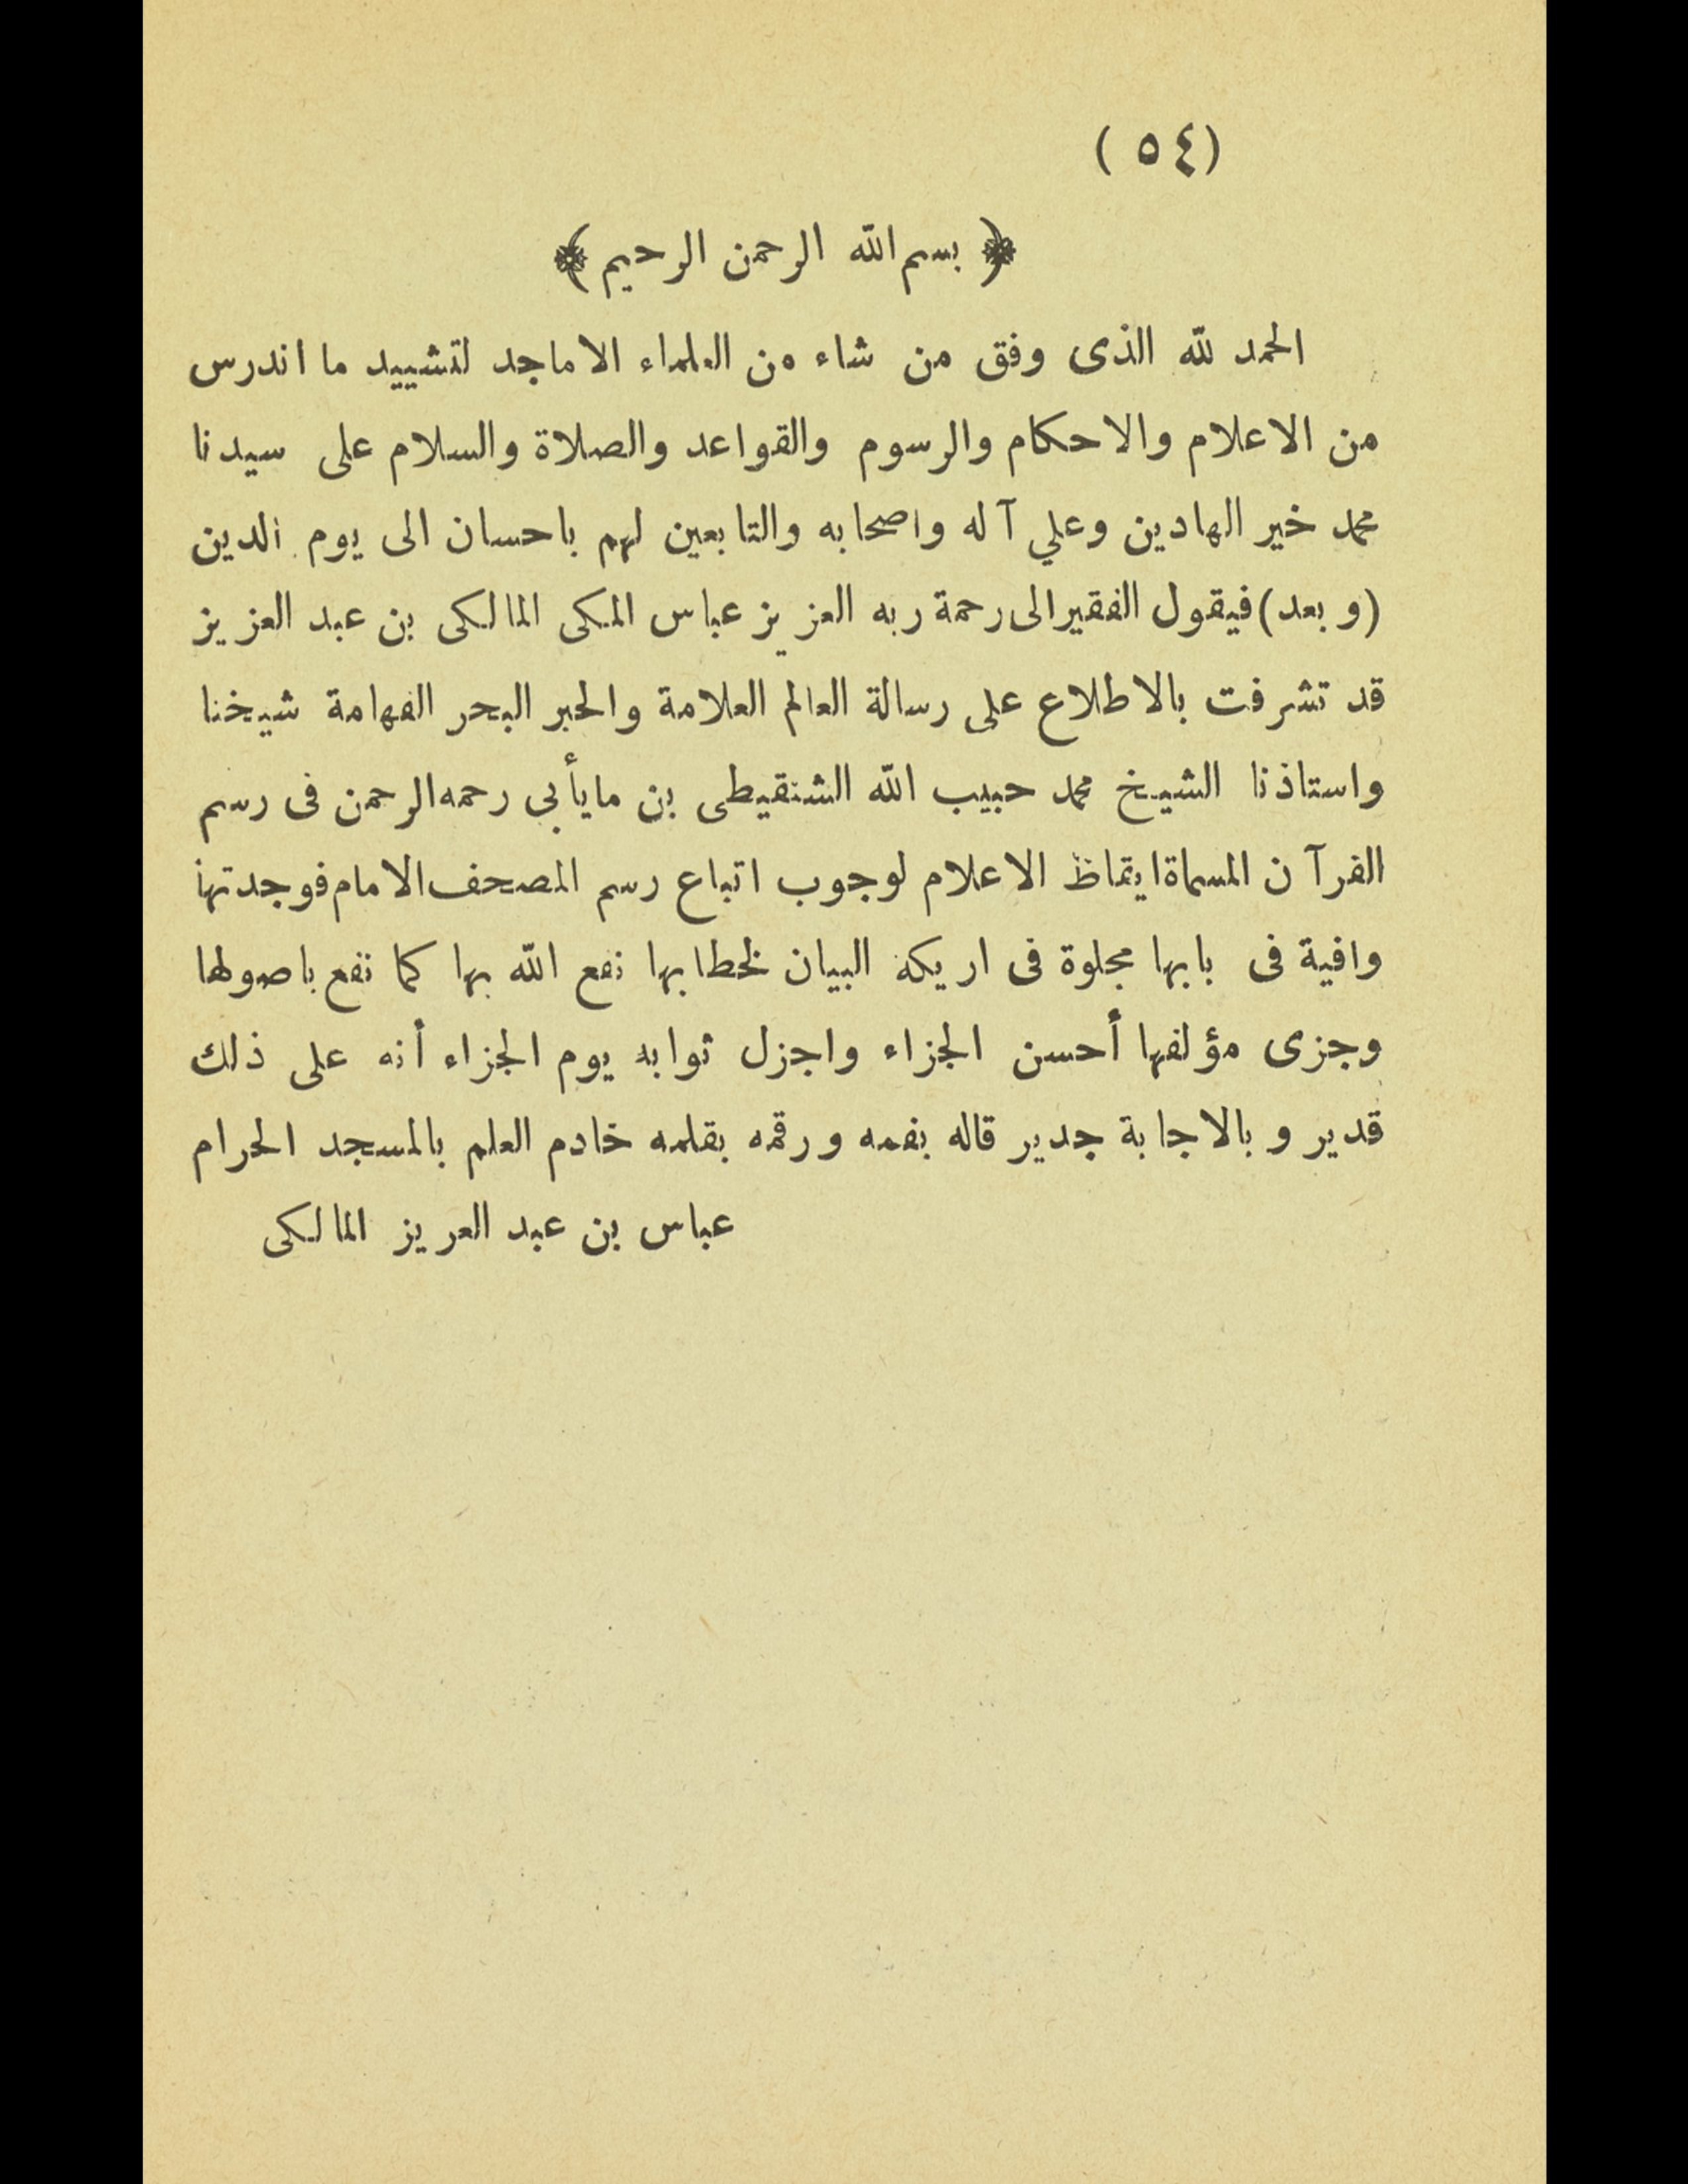 (٥٤)
﴿ بسم الله الرحمن الرحيم ﴾
الحمد لله الذى وفق من شاء من العلماء الاماجد لتشييد ما اندرس
من الاعلام والاحكام والرسوم والقواعد والصلاة والسلام على سيدنا
محمد خير الهادين وعلي آله واصحابه والتابعين لهم باحسان الى يوم الدين
(وبعد) فيقول الفقير الى رحمة ربه العزيز عباس المكى المالكى بن عبد العزيز
قد تشرفت بالاطلاع على رسالة العالم العلامة والحبر البحر الفهامة شيخنا
واستاذنا الشيخ محمد حبيب الله الشنقيطى بن مايأبى رحمه الرحمن فى رسم
القرآن المسماة ايقاظ الاعلام لوجوب اتباع رسم المصحف الامام فوجدتها
وافية فى بابها مجلوة فى اريكة البيان لخطابها نفع الله بها كما نفع باصولها
وجزى مؤلفها أحسن الجزاء واجزل ثوابه يوم الجزاء أنه على ذلك
قدير وبالاجابة جدير قاله بفمه ورقمه بقلمه خادم العلم بالمسجد الحرام
عباس بن عبد العزيز المالكى